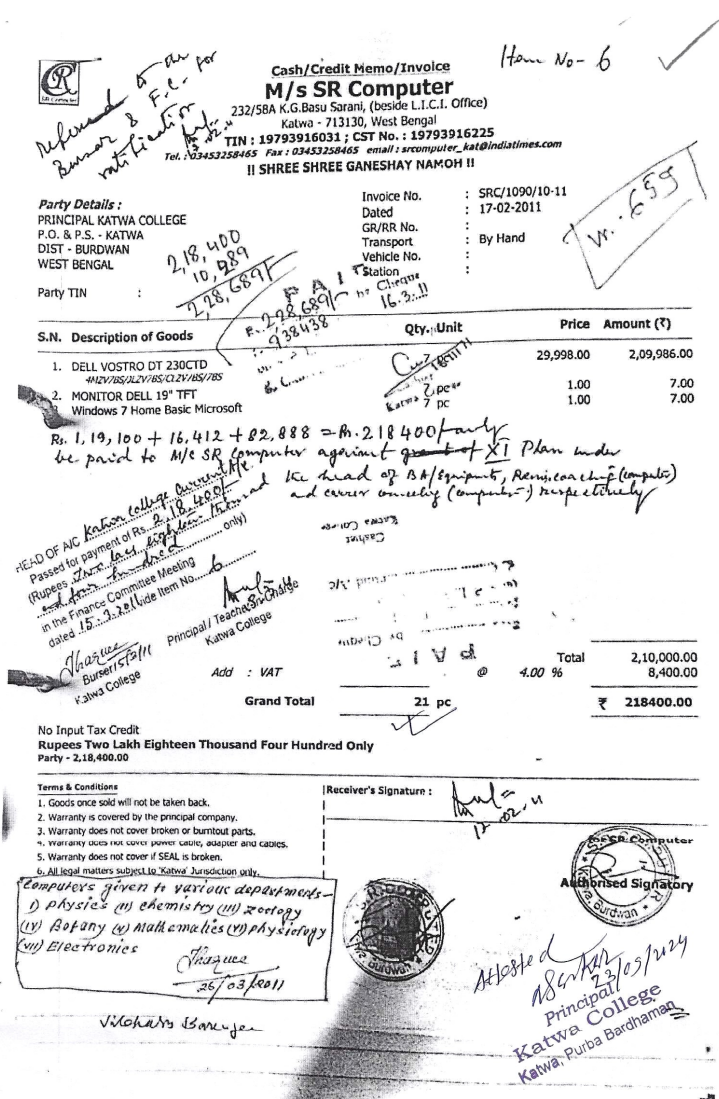 Item No- 6
CR
SR Computer
Cash/Credit Memo/Invoice
M/s SR Computer
232/58A K.G.Basu Sarani, (beside L.I.C.I. Office)
Katwa - 713130, West Bengal
TIN : 19793916031 ; CST No. : 19793916225
Tel. : 03453258465 Fax : 03453258465 email : srcomputer_kat@indiatimes.com
!! SHREE SHREE GANESHAY NAMOH !!
referred to the
Bursar & F.C. for
ratification
Party Details :
PRINCIPAL KATWA COLLEGE
P.O. & P.S. - KATWA
DIST - BURDWAN
WEST BENGAL
Party TIN :
2,18,400
10,289
2,28,689/-
Invoice No. : SRC/1090/10-11
Dated : 17-02-2011
GR/RR No. :
Transport : By Hand
Vehicle No. :
Station :
Vr. - 659
PAI
Rs. 2,28,689/- by Cheque
938438
16.3.11
S.N. Description of Goods Qty. Unit Price Amount (₹)
1. DELL VOSTRO DT 230CTD 7 29,998.00 2,09,986.00
4MZV7BS/JLZV7BS/CLZV7BS/7BS
2. MONITOR DELL 19" TFT 7 pc 1.00 7.00
Windows 7 Home Basic Microsoft 7 pc 1.00 7.00
Katwa
Rs. 1,19,100 + 16,412 + 82,888 = Rs. 218400/- only
be paid to M/S SR Computer against grant of XI Plan under
the head of BA/Equipments, Remi. coaching (computer)
and career counseling (computer) respectively
HEAD OF A/C Katwa College Current A/c.
Passed for payment of Rs. 2,18,400/-
(Rupees Two lacs Eighteen thousand
and four hundred only)
in the Finance Committee Meeting
dated 15.3.2011 vide Item No. 6
Cashier
Katwa College
by Cheque
PAI
Principal / Teacher-in-Charge
Katwa College
Burser 15/3/11
Katwa College
Total 2,10,000.00
Add : VAT @ 4.00 % 8,400.00
Grand Total 21 pc ₹ 218400.00
No Input Tax Credit
Rupees Two Lakh Eighteen Thousand Four Hundred Only
Party - 2,18,400.00
Terms & Conditions
1. Goods once sold will not be taken back.
2. Warranty is covered by the principal company.
3. Warranty does not cover broken or burntout parts.
4. Warranty does not cover power cable, adapter and cables.
5. Warranty does not cover if SEAL is broken.
6. All legal matters subject to 'Katwa' Jurisdiction only.
Receiver's Signature :
17.02.11
SR Computer
Authorised Signatory
Computers given to various departments-
I) Physics (II) Chemistry (III) Zoology
(IV) Botany (V) Mathematics (VI) Physiology
(VII) Electronics
26/03/2011
Attested
23/09/2024
Principal
Katwa College
Katwa, Purba Bardhaman